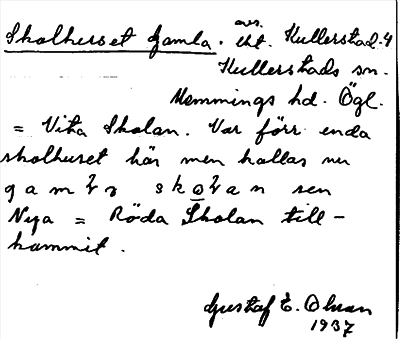 Skolhuset Gamla. avs. tht. Kullerstad. 4
Kullerstads sn.
Memmings hd. Ögl.
= Vita Skolan. Var förr enda
skolhuset här men kallas nu
gamla skolan sen
Nya = Röda Skolan till-
kommit.
Gustaf E. Olsson
1937